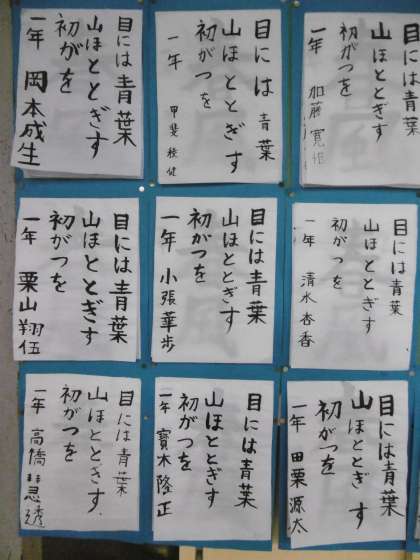 目には青葉
山ほととぎす
初がつを
一年 岡本成生
目には青葉
山ほととぎす
初がつを
一年 甲斐 稜健
目には青葉
山ほととぎす
初がつを
一年 加藤 寛
目には青葉
山ほととぎす
初がつを
一年 栗山翔伍
目には青葉
山ほととぎす
初がつを
一年 小張華歩
目には青葉
山ほととぎす
初がつを
一年 清水杏香
目には青葉
山ほととぎす
初がつを
一年 高橋
目には青葉
山ほととぎす
初がつを
一年 寳木隆正
目には青葉
山ほととぎす
初がつを
一年 田栗源太